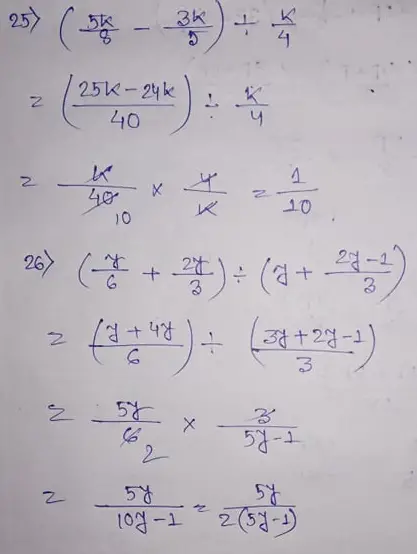 25) (5k/8 - 3k/5) ÷ k/4
= (25k - 24k / 40) ÷ k/4
= k/40 10 × 4/k = 1/10
26) (y/6 + 2y/3) ÷ (y + 2y-1/3)
= (y + 4y / 6) ÷ (3y + 2y - 1 / 3)
= 5y/6 2 × 3/5y-1
= 5y/10y-1 = 5y/2(5y-1)